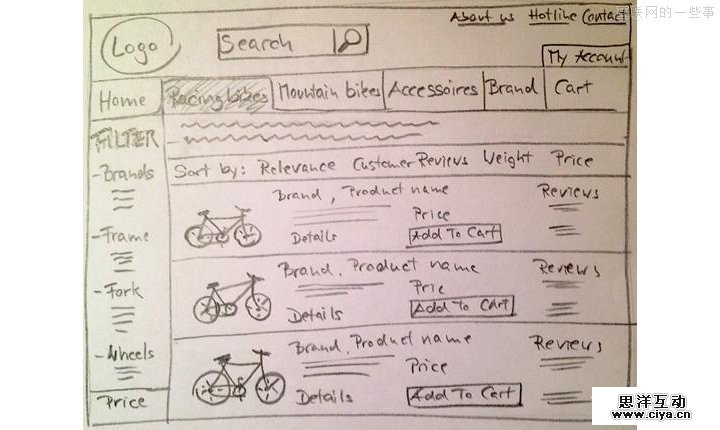 About us Hotline Contact
互联网的一些事
Logo
Search
My Account
Home Racing bikes Mountain bikes Accessoires Brand Cart
FILTER
Sort by: Relevance Customer Reviews Weight Price
-Brands
-Frame
-Fork
-Wheels
Price
Brand, Product name Reviews
Price
Details Add To Cart
Brand, Product name Reviews
Price
Details Add To Cart
Brand, Product name Reviews
Price
Details Add To Cart
思洋互动
www.ciya.cn